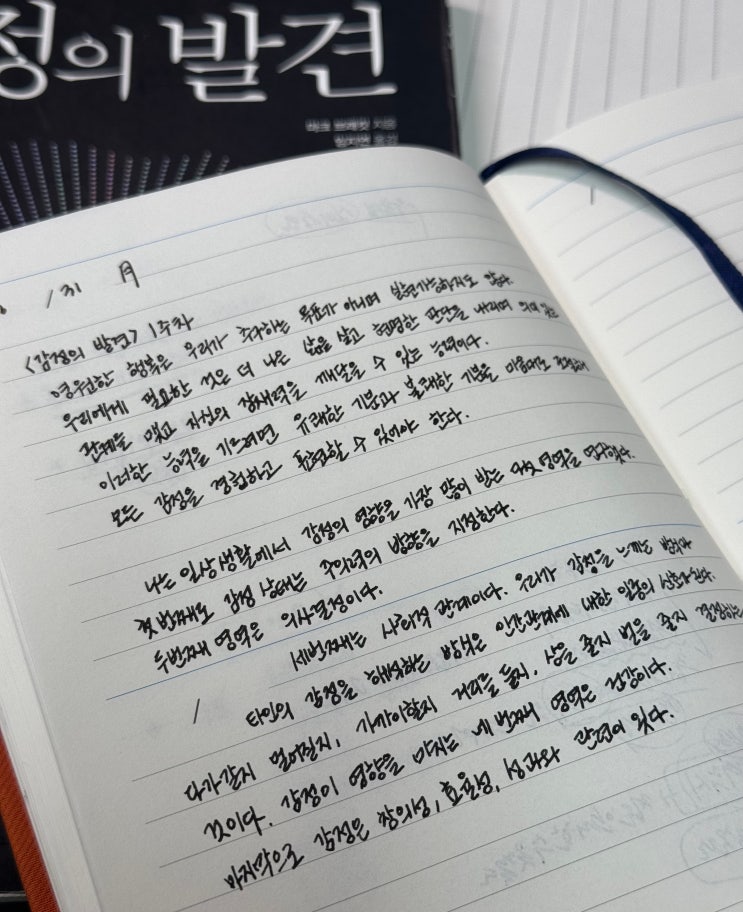 정의 발견
마크 브래킷 지음
임지연 옮김
/31 月
<감정의 발견> 1주차
영원한 행복은 우리가 추구하는 목표가 아니며 실현가능하지도 않다.
우리에게 필요한 것은 더 나은 삶을 살고 현명한 판단을 내리며 의미 있는
관계를 맺고 자신의 잠재력을 깨달을 수 있는 능력이다.
이러한 능력을 기르려면 유쾌한 기분과 불쾌한 기분을 마음대로
모든 감정을 경험하고 표현할 수 있어야 한다.
나는 일상생활에서 감정의 영향을 가장 많이 받는 다섯 영역을 연구했다.
첫번째로 감정 상태는 주의력의 방향을 지정한다.
두번째 영역은 의사결정이다.
세번째는 사회적 관계이다. 우리가 감정을 느끼는 방식과
/ 타인의 감정을 해석하는 방식은 인간관계에 대한 일종의 신호가 된다.
다가갈지 멀어질지, 가까이할지 거리를 둘지, 상을 줄지 벌을 줄지 결정하는
것이다. 감정이 영향을 미치는 네 번째 영역은 건강이다.
마지막으로 감정은 창의성, 효율성, 성과와 관련이 있다.